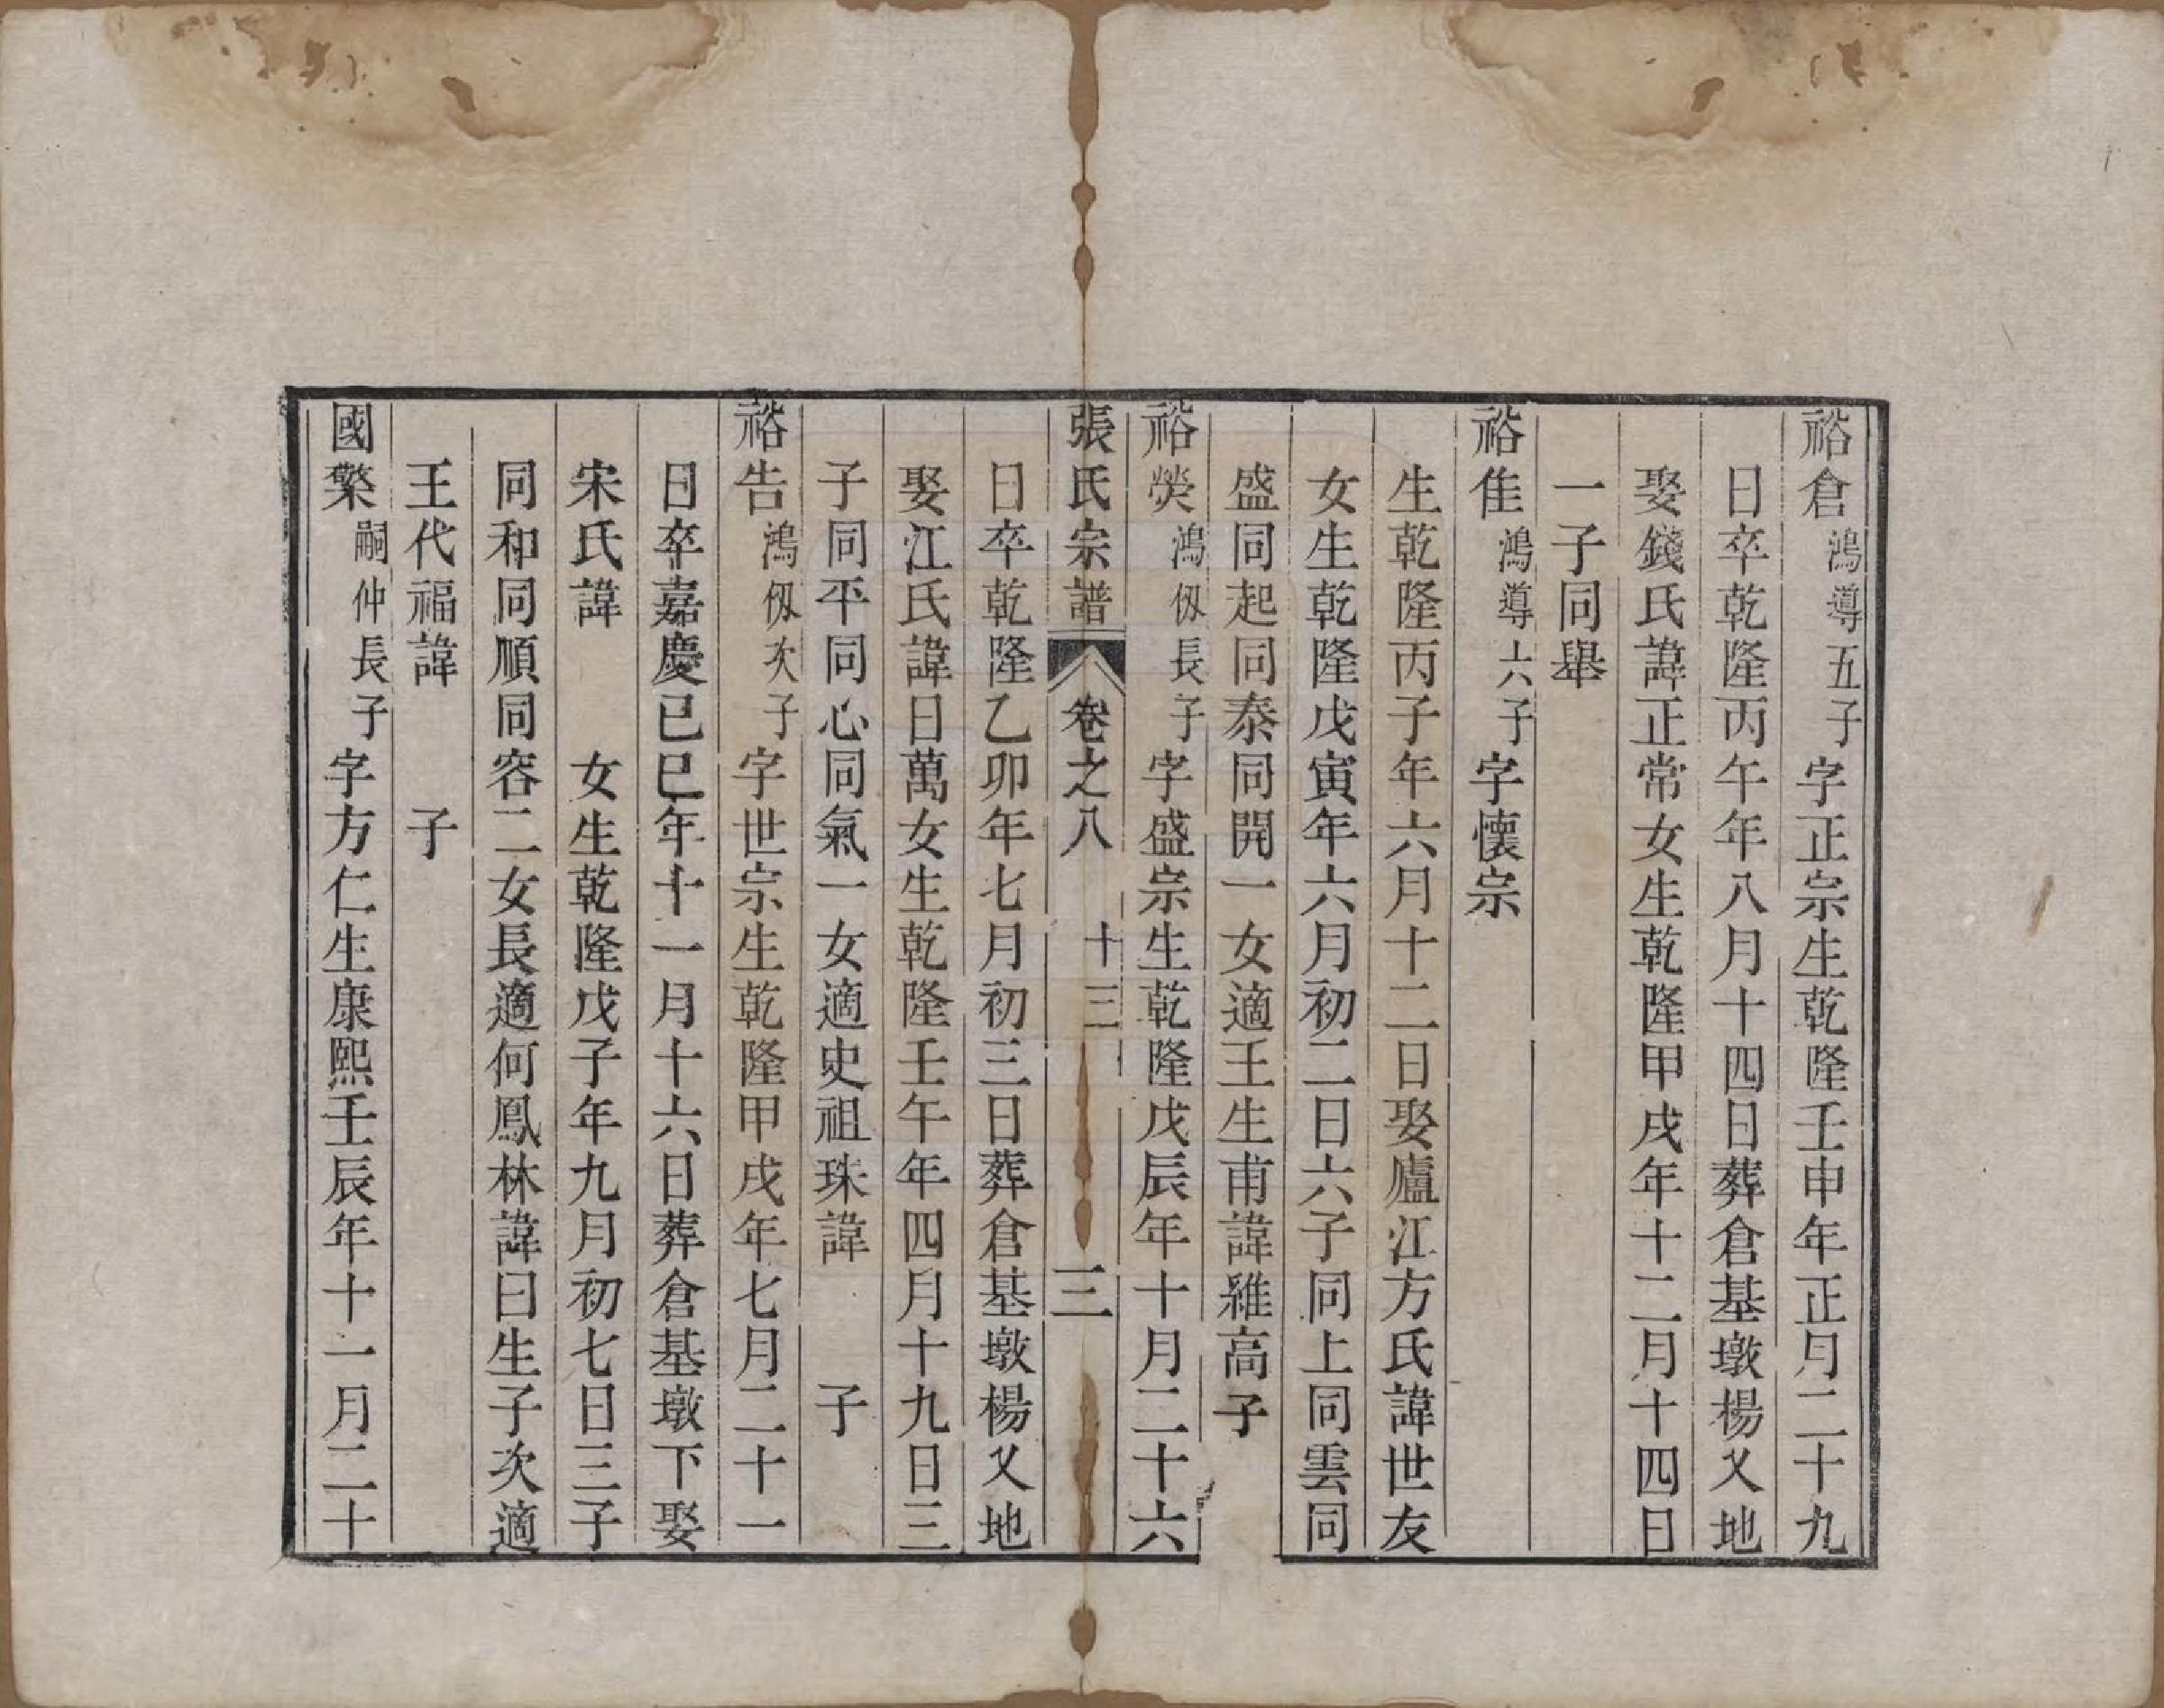 裕倉鴻導五子字正宗生乾隆壬申年正月二十九
日卒乾隆丙午年八月十四日葬倉基墩楊又地
娶錢氏諱正常女生乾隆甲戌年十二月十四日
一子同舉
裕隹鴻導六子字懷宗
生乾隆丙子年六月十二日娶廬江方氏諱世友
女生乾隆戊寅年六月初二日六子同上同雲同
盛同起同泰同開一女適王生甫諱維高子
裕熒鴻伋長子字盛宗生乾隆戊辰年十月二十六
張氏宗譜 卷之八 十三 三
日卒乾隆乙卯年七月初三日葬倉基墩楊又地
娶江氏諱日萬女生乾隆壬午年四月十九日三
子同平同心同氣一女適史祖珠諱 子
裕告鴻伋次子字世宗生乾隆甲戌年七月二十一
日卒嘉慶己巳年十一月十六日葬倉基墩下娶
宋氏諱 女生乾隆戊子年九月初七日三子
同和同順同容二女長適何鳳林諱曰生子次適
王代福諱 子
國檠嗣仲長子字方仁生康熙壬辰年十一月二十